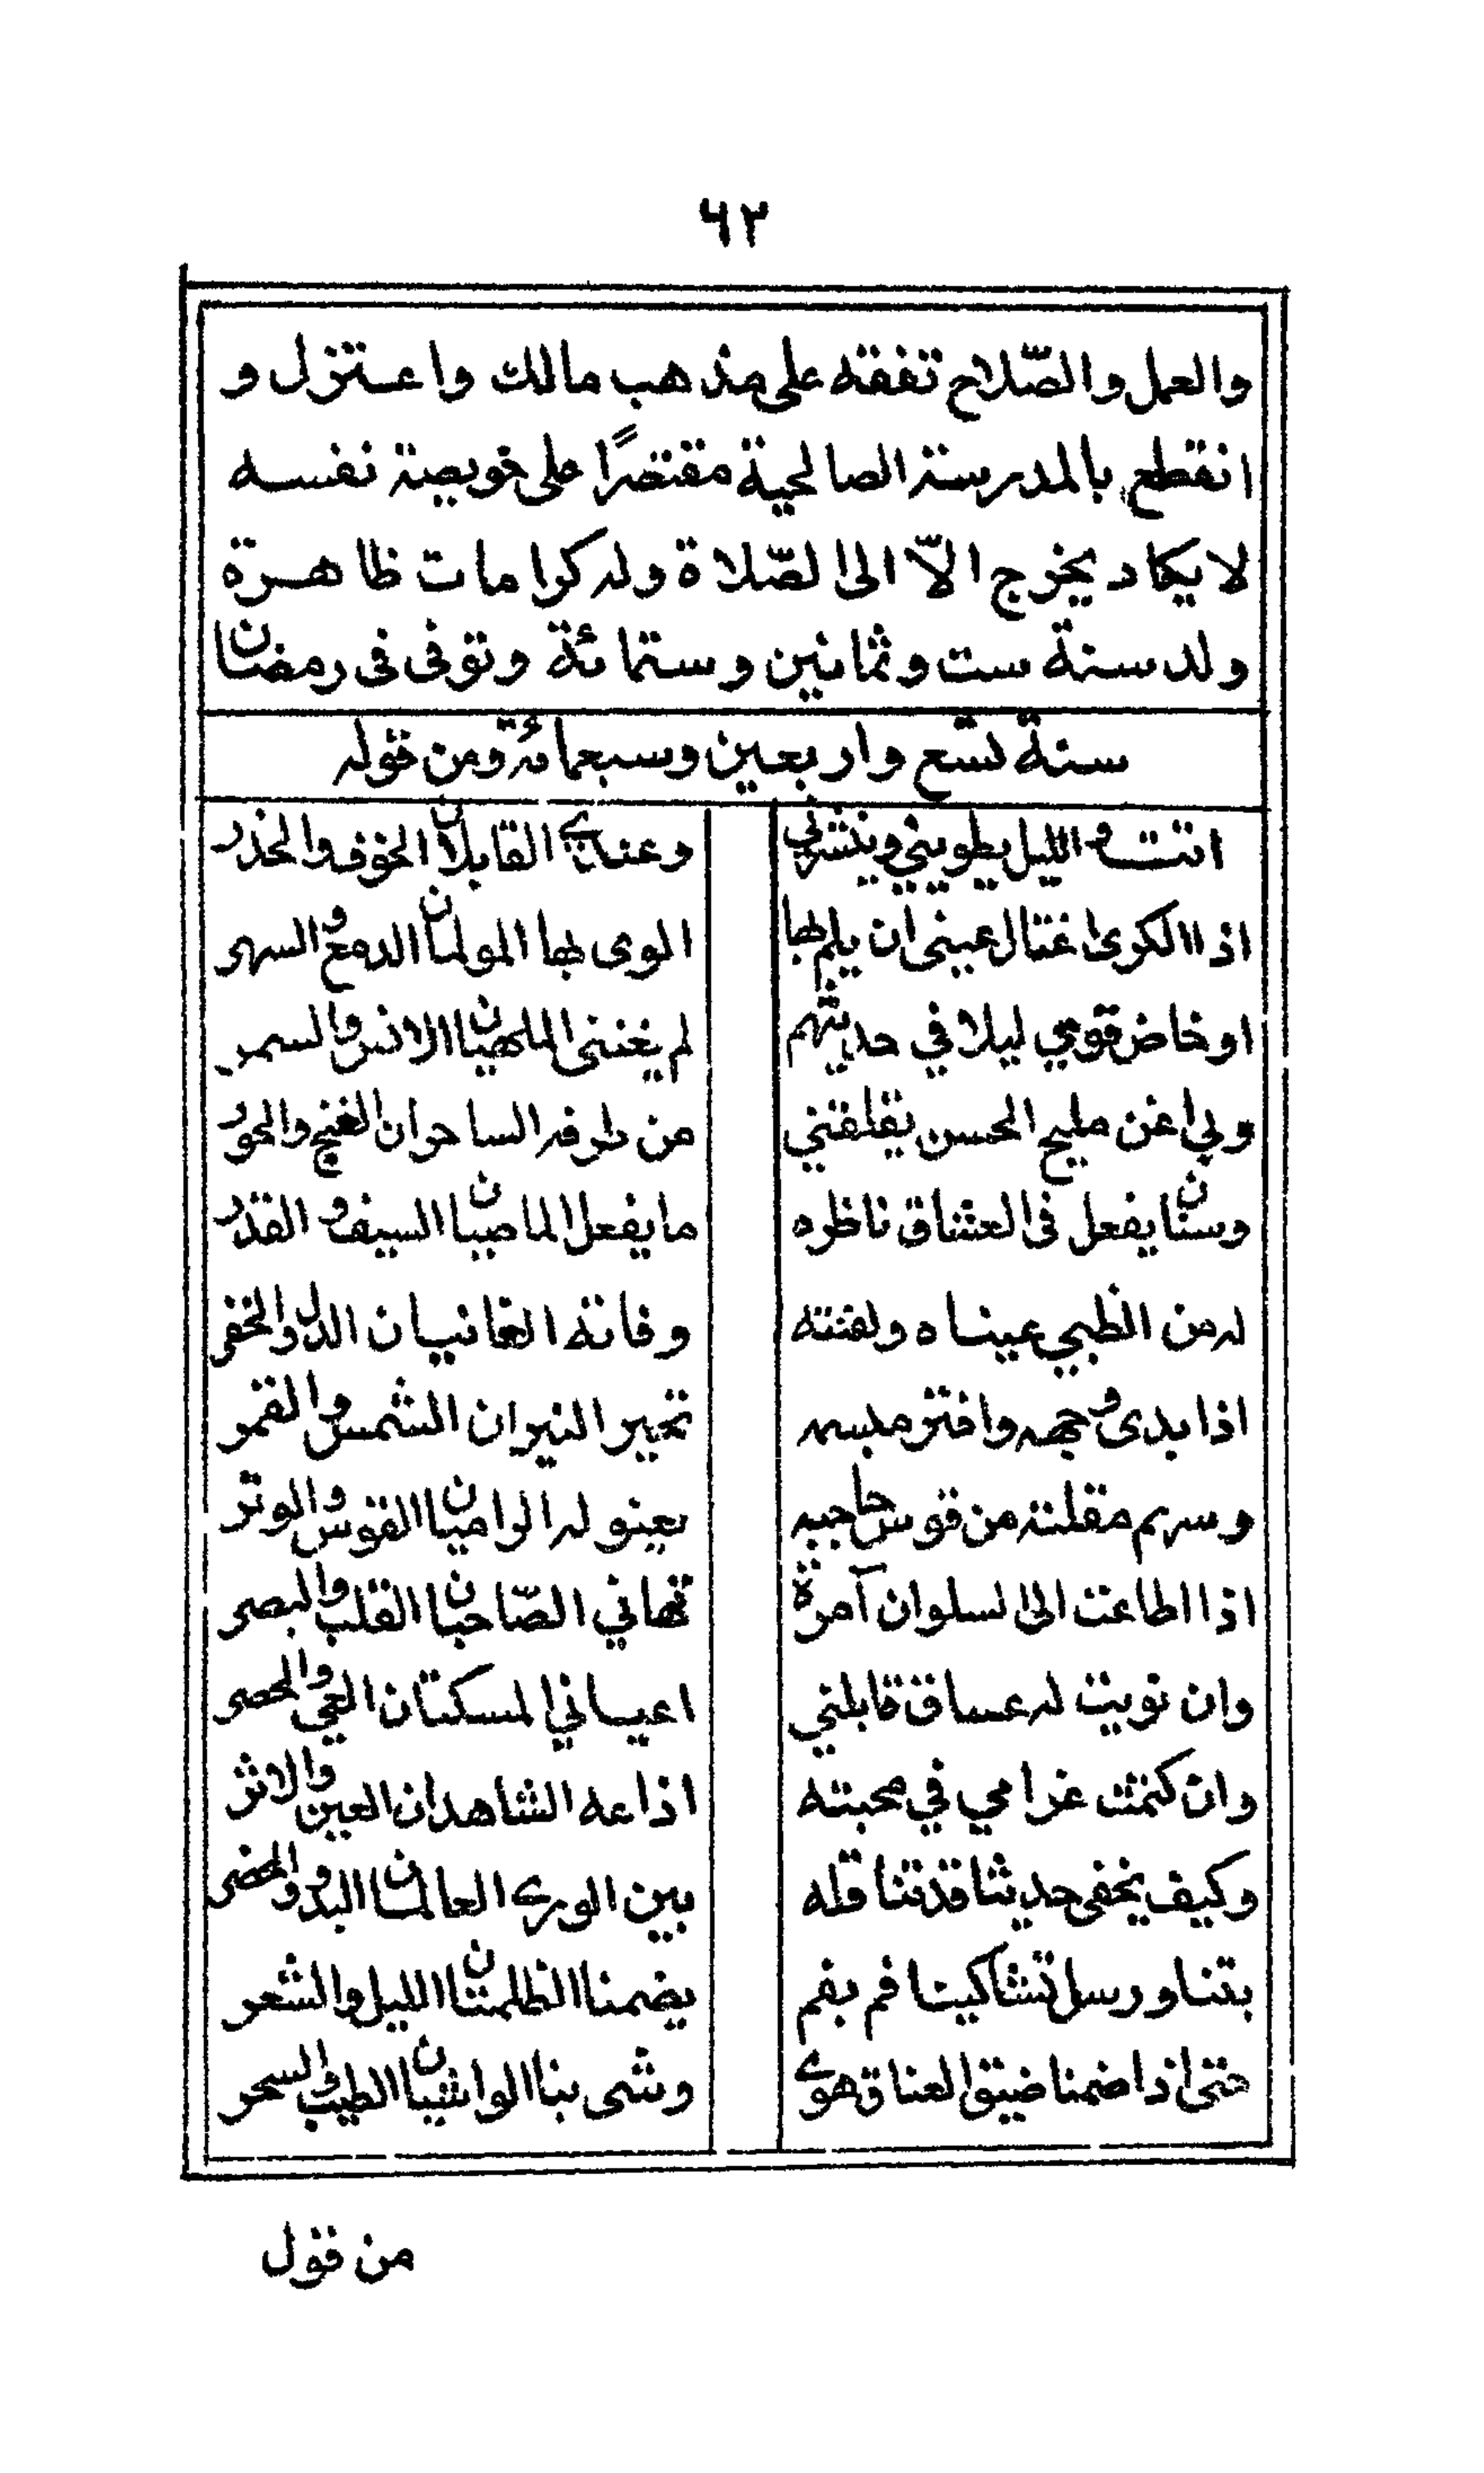 ٦٢
والعمل والصّلاح تفقه على مذهب مالك واعتزل و
انقطع بالمدرسة الصالحية مقتصرًا على خويصة نفسه
لا يكاد يخرج الاّ الى الصّلاة وله كرامات ظاهرة
ولد سنة ست وثمانين وستمائة وتوفى فى رمضان
سنة تسع واربعين وسبعمائة ومن قوله
انت والليل يطويني وينشرني وعنائي القابلان الخوف والحذر
اذا الكرى اغتال عينى ان يلم لها الوى لها المولمان الدمع والسهر
او خاض قومي ليلا في حديثهم لم يغننى الملهيان الانس والسمر
وبي اغن مليح الحسن يقلقني من طرفه الساحران الغنج والحور
وسنان يفعل فى العشاق ناظره ما يفعل الماضيان السيف و القدر
له من الظبي عيناه ولفتته وفاته الغانيان الدل والخفر
اذا بدى وجهه وافتر مبسمه تحير النيران الشمس والقمر
وسهم مقلته من قوس حاجبه يعنو له الراميان القوس والوتر
اذا اطاعت الى السلوان آمرة نهاني الصّاحبان القلب والبصر
وان نويت له عساف قابلني اعياني المسكتان العي والحصر
وان كتمت غرامي في محبته اذاعه الشاهدان العين والاثر
وكيف يخفى حديثا قد تناقله بين الورى العالمان البدو والحضر
بتنا ورسل تشاكينا فم بفم يضمنا الظلمتان الليل والشعر
حتى اذا ضمنا ضيق العناق هوى وشى بنا الواشيان الطيب والسحر
من قول